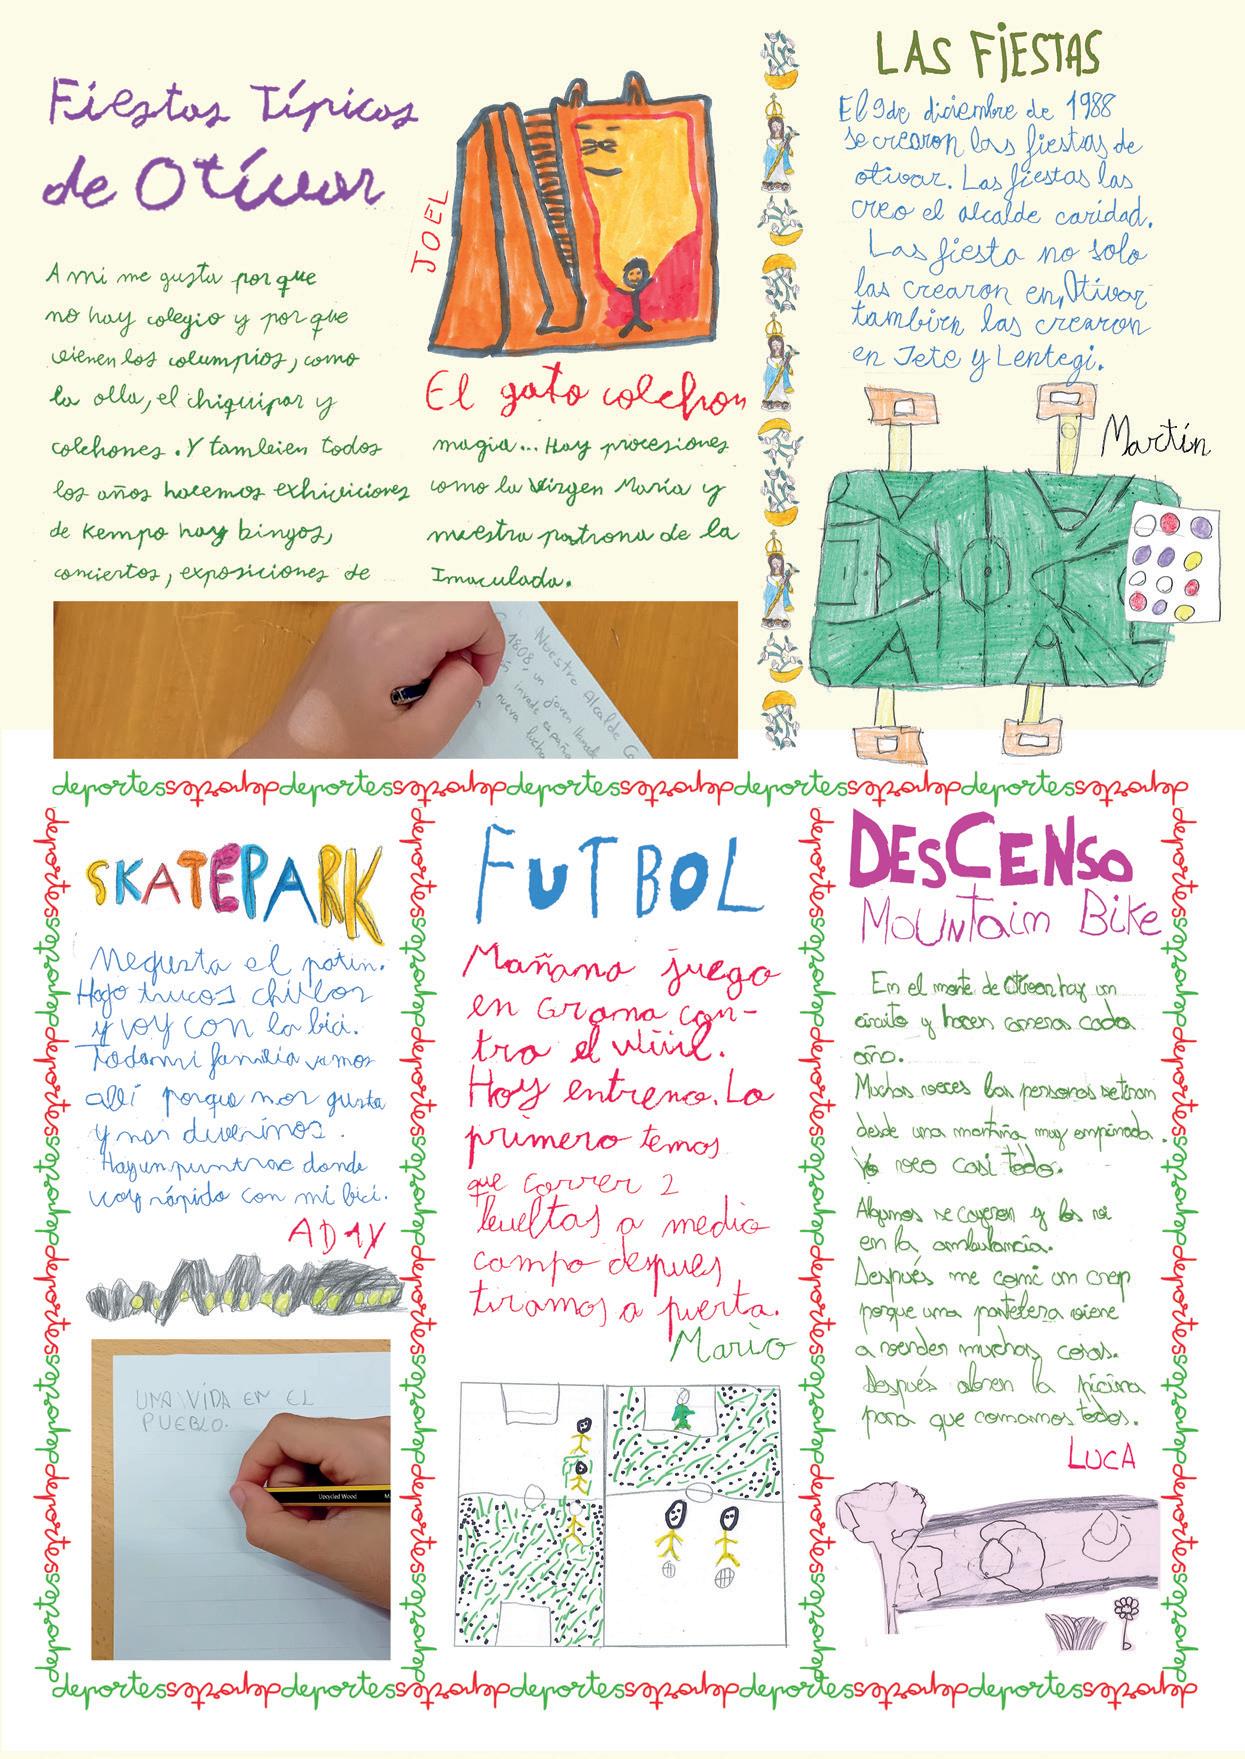 Fiestas Típicas
de Otívar
A mi me gusta por que
no hay colegio y por que
vienen los columpios, como
la olla, el chiquipar y
colchones. Y tambien todos
los años hacemos exhiviciones
de Kempo hay bingos,
conciertos, exposiciones de
JOEL
El gato colchon
magia... Hay procesiones
como la Virgen María y
nuestra patrona de la
Inmaculada.
Nuestro Alcalde
1808, un joven
invade españa
nueva
lucha
LAS FIESTAS
El 9 de diciembre de 1988
se crearon las fiestas de
otivar. Las fiestas las
creo el alcalde caridad.
Las fiesta no solo
las crearon en, Otívar
tambirn las crearon
en Jete y Lentegi.
Martín
deportesdeportesdeportesdeportesdeportesdeportesdeportesdeportesdeportesdeportes
SKATEPARK
Me gusta el patin.
Hago trucos chulos
y voy con la bici.
Toda mi familia vamos
allí porque nos gusta
y nos divertimos.
Hay un pumtrac donde
voy rápido con mi bici.
ADAY
UNA VIDA EN EL
PUEBLO.
Upcycled Wood
FUTBOL
Mañana juego
en Grama con-
tra el
Hoy entreno. Lo
primero temos
que correr 2
vueltas a medio
campo despues
tiramos a puerta.
Mario
DESCENSO
Mountain Bike
En el monte de Otívar hay un
circuito y hacen carreras cada
año.
Muchas veces las personas se tiran
desde una montaña muy empinada.
Yo veo casi todo.
Algunos se cayeron y los vi
en la ambulancia.
Después me comí un crep
porque una pastelera viene
a vender muchas cosas.
Después abren la picina
para que comamos todos.
LUCA
deportesdeportesdeportesdeportesdeportesdeportesdeportesdeportesdeportesdeportes